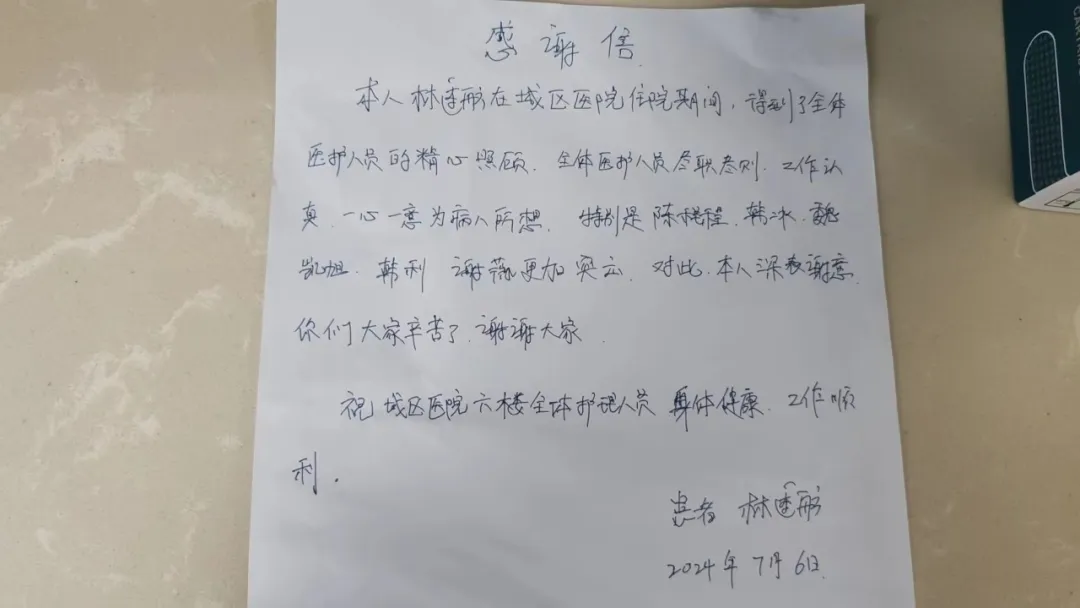 感谢信
本人林 在城区医院住院期间，得到了全体
医护人员的精心照顾。全体医护人员尽职尽则，工作认
真，一心一意为病人所想，特别是陈 程，韩冰，魏
凯旭，韩利 谢薇更加突出，对此，本人深表谢意，
你们大家辛苦了，谢谢大家。
祝城区医院六楼全体护理人员 身体健康，工作顺
利。
患者 林
2024年7月6日